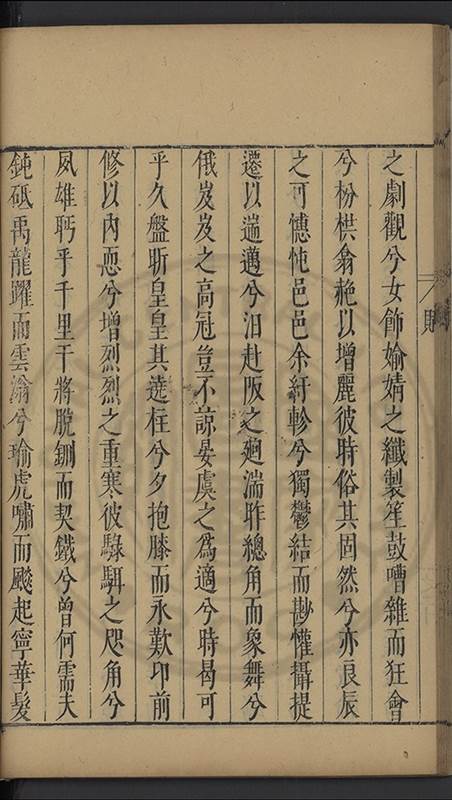 之劇觀兮女飾媮婧之纖製笙鼓嘈雜而狂會
兮枌栱翕赩以增麗彼時俗其固然兮亦良辰
之可憓忳邑邑余紆軫兮獨鬱結而尠懽攝提
遷以遄邁兮汨赴阪之廻湍昨總角而象舞兮
俄岌岌之高冠豈不諒晏虞之為適兮時曷可
乎久盤昕皇皇其遶柱兮夕抱膝而永歎卬前
修以內恧兮增烈烈之重寒彼騄駬之咫角兮
夙雄眄乎千里干將脫鉶而契鐵兮曾何需夫
鈍砥禹龍躍而雲滃兮瑜虎嘯而飈起寧華髮